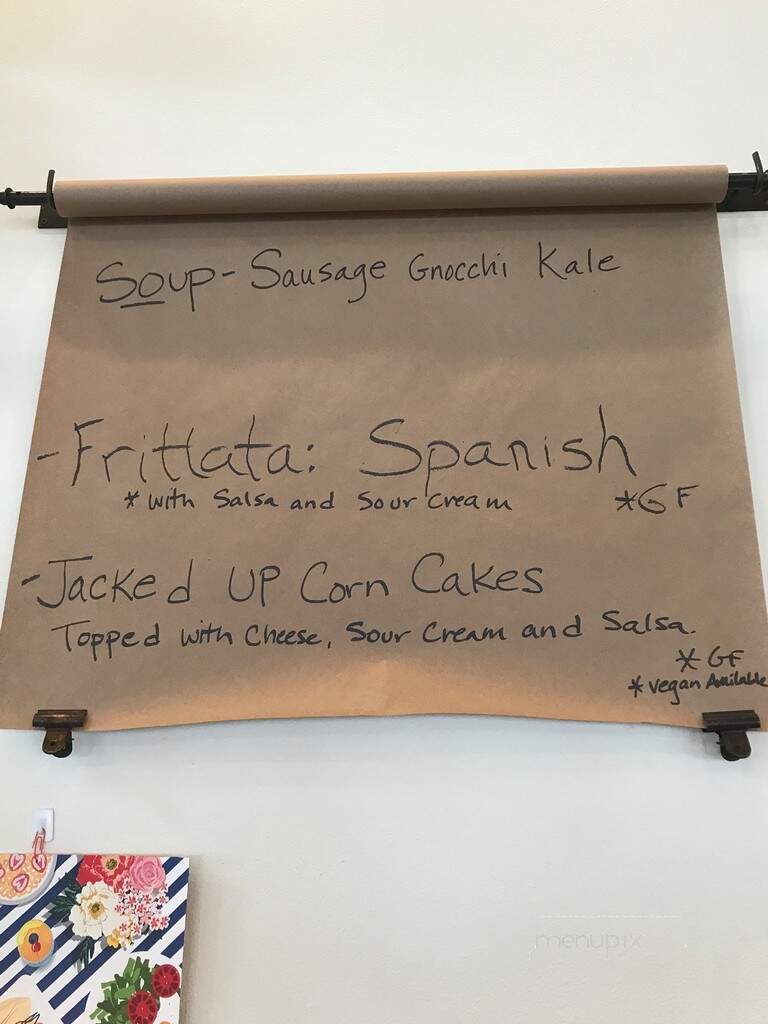 Soup - Sausage Gnocchi Kale
- Frittata: Spanish
* with Salsa and Sour Cream *GF
- Jacked UP Corn Cakes
Topped with Cheese, Sour Cream and Salsa.
* GF
* vegan Available
menupix